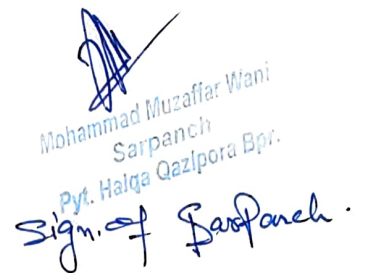 Mohammad Muzaffar Wani
Sarpanch
Pyt. Halqa Qazipora Bpr.
Sign. of SarPanch.